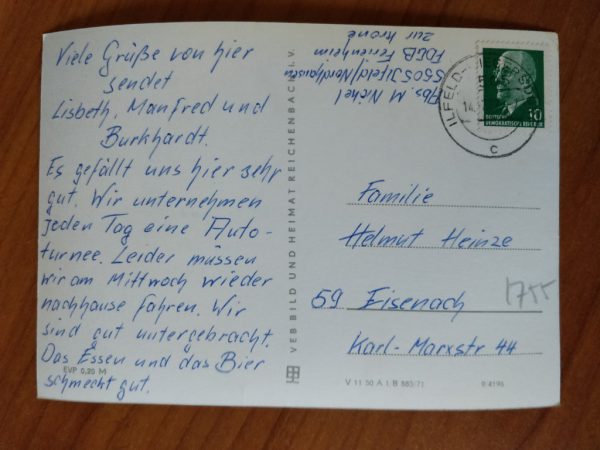 Viele Grüße von hier
sendet
Lisbeth, Manfred und
Burkhardt.
Es gefällt uns hier sehr
gut. Wir unternehmen
jeden Tag eine Auto-
turnee. Leider müssen
wir am Mittwoch wieder
nachhause fahren. Wir
sind gut untergebracht.
Das Essen und das Bier
schmeckt gut.
EVP 0,20 M
VEB BILD UND HEIMAT REICHENBACH i. V.
Abs. M Nickel
5505 Ilfeld/Nordhausen
FDGB Ferienheim
zur Krone
ILFELD
14.
c
10
DEUTSCHE
DEMOKRATISCHE REPUBLIK
Familie
Helmut Heinze
59 Eisenach
1755
Karl-Marxstr 44
V 11 50 A 1 B 885/71
9 4196